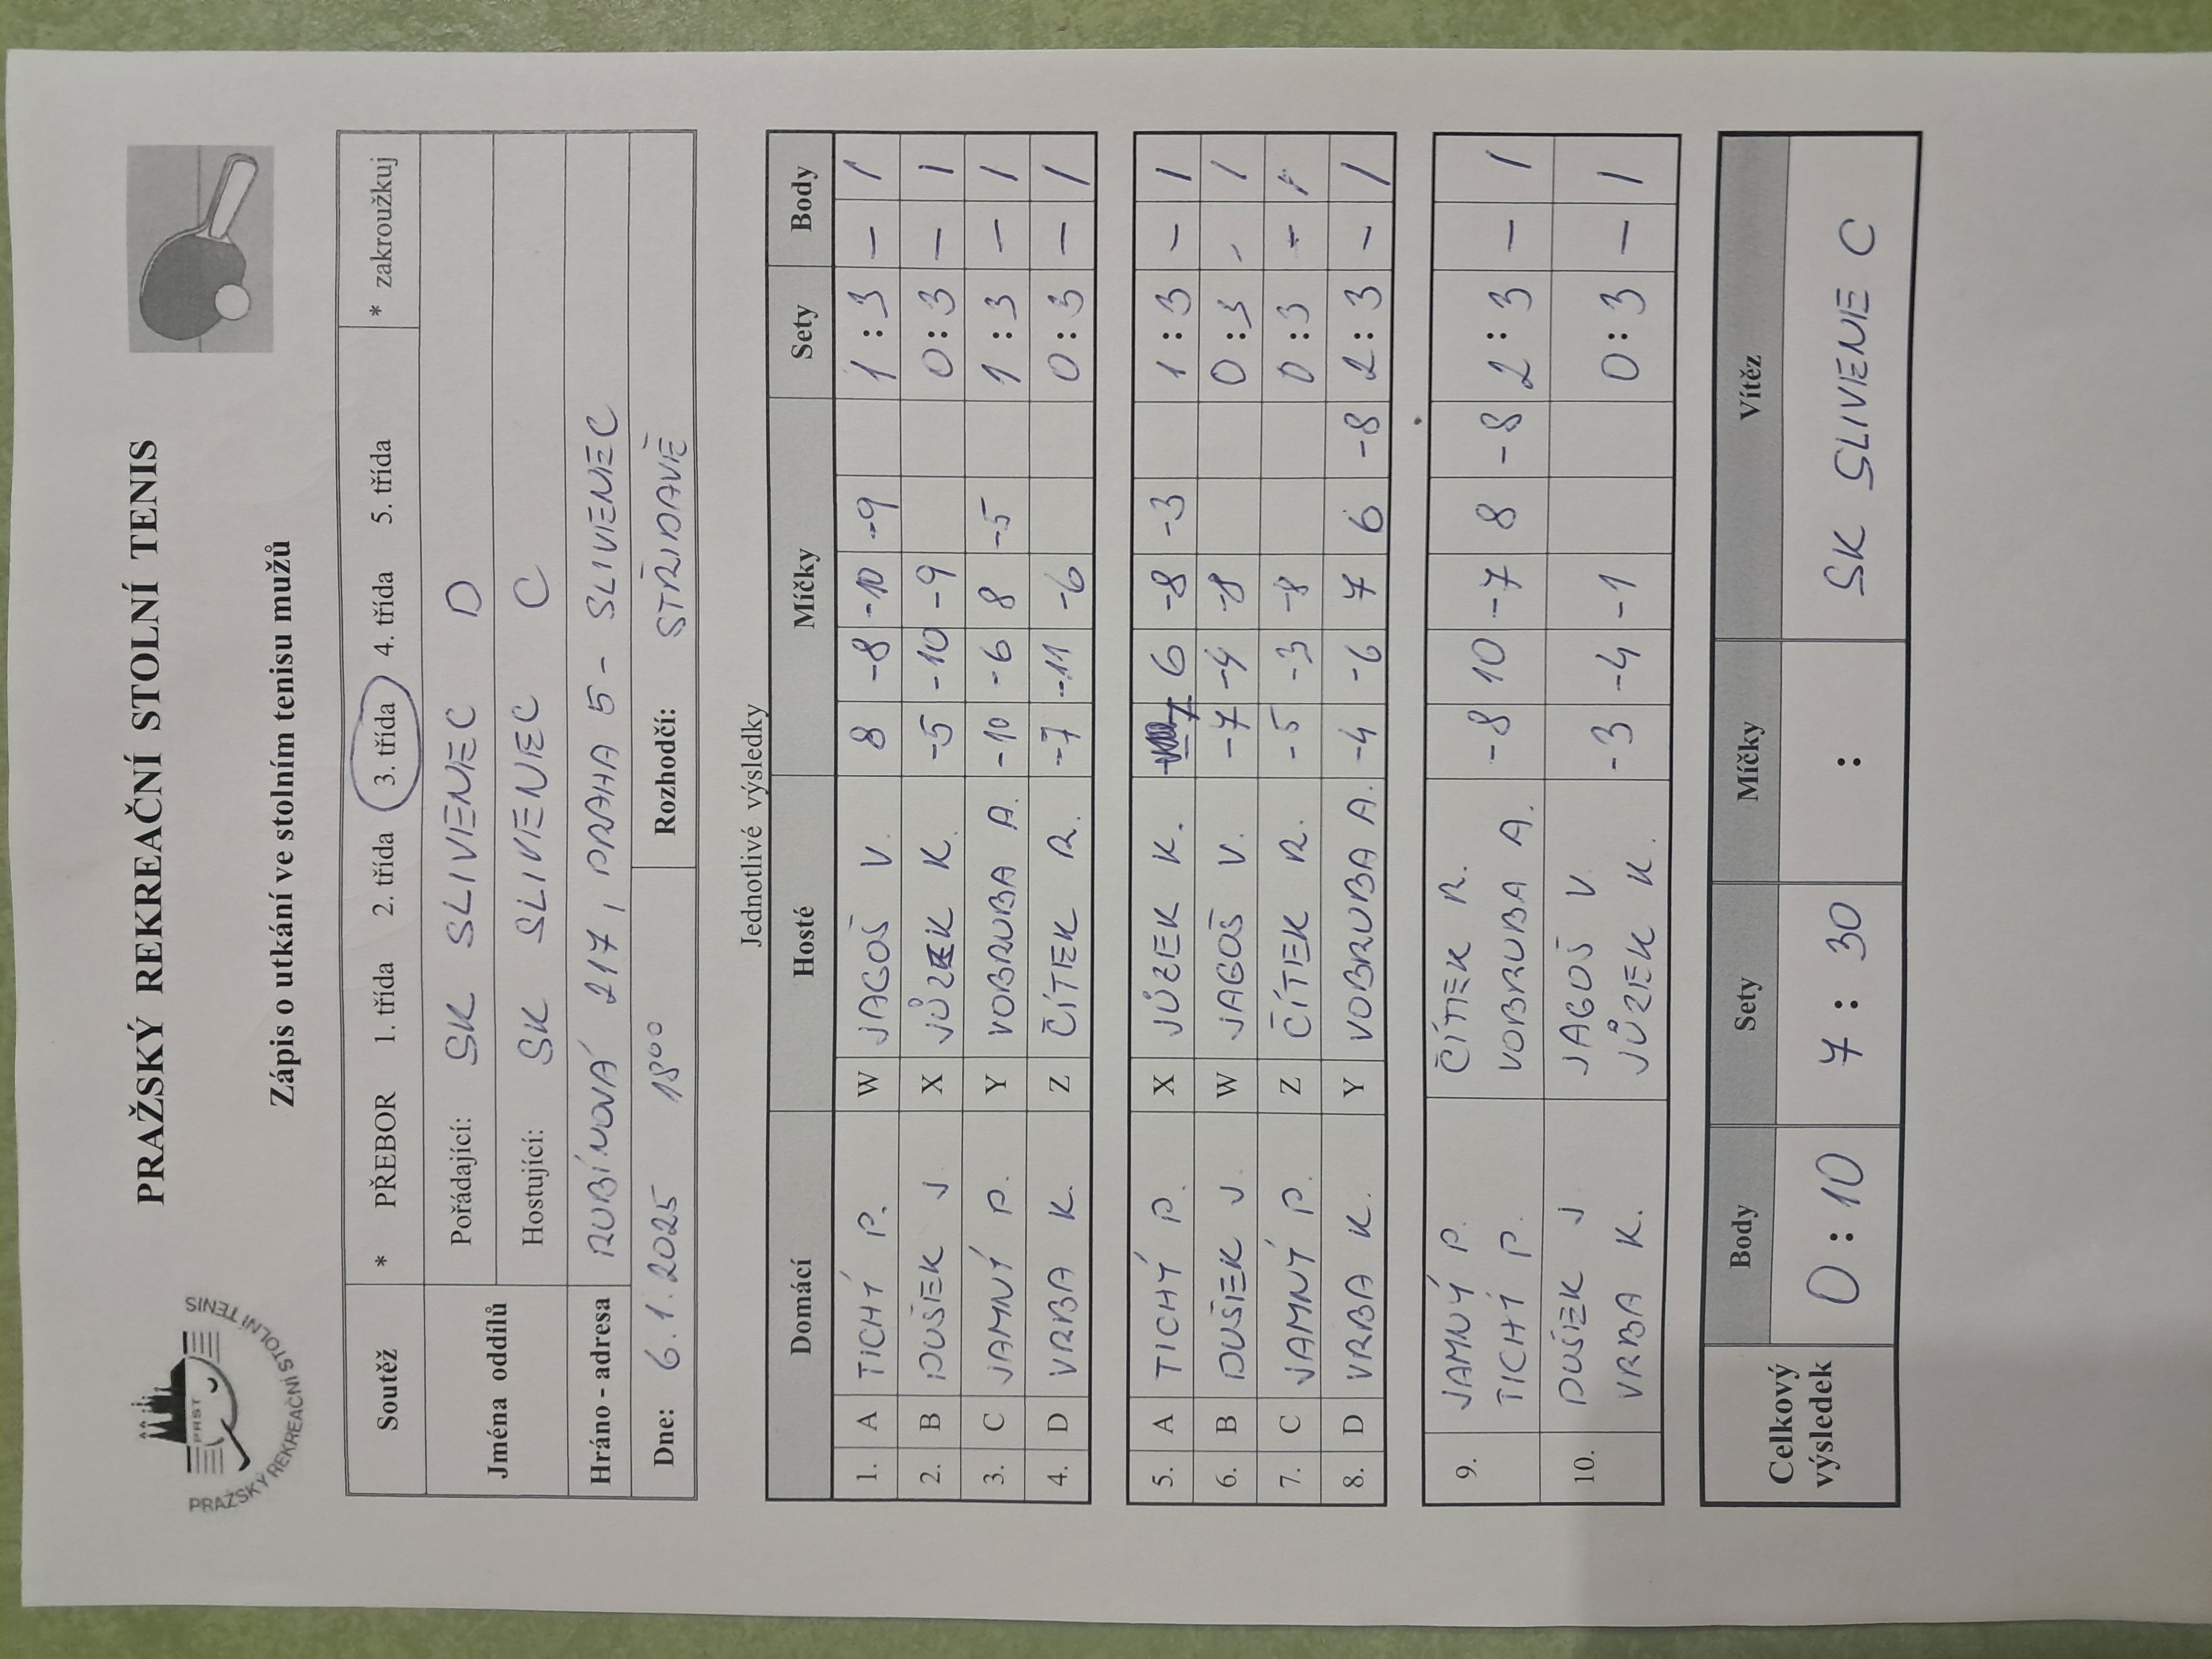 PRAŽSKÝ REKREAČNÍ STOLNÍ TENIS
PRST
PRAŽSKÝ REKREAČNÍ STOLNÍ TENIS
Zápis o utkání ve stolním tenisu mužů
Soutěž * PŘEBOR 1. třída 2. třída 3. třída 4. třída 5. třída * zakroužkuj
Jména oddílů
Pořádající: SK SLIVENEC D
Hostující: SK SLIVENEC C
Hráno - adresa RUBÍNOVÁ 217, PRAHA 5 - SLIVENEC
Dne: 6.1.2025 18⁰⁰ Rozhodčí: STŘÍDAVĚ
Jednotlivé výsledky
Domácí Hosté Míčky Sety Body
1. A TICHÝ P. W JAGOŠ V. 8 -8 -10 -9 1 : 3 - 1
2. B DUŠEK J. X JŮZEK K. -5 -10 -9 0 : 3 - 1
3. C JAMNÝ P. Y VOBRUBA A. -10 -6 8 -5 1 : 3 - 1
4. D VRBA K. Z ČÍTEK R. -7 -11 -6 0 : 3 - 1
5. A TICHÝ P. X JŮZEK K. -7 6 -8 -3 1 : 3 - 1
6. B DUŠEK J. W JAGOŠ V. -7 -4 -8 0 : 3 - 1
7. C JAMNÝ P. Z ČÍTEK R. -5 -3 -8 0 : 3 - 1
8. D VRBA K. Y VOBRUBA A. -4 -6 7 6 -8 2 : 3 - 1
9. JAMNÝ P. ČÍTEK R. -8 10 -7 8 -8 2 : 3 - 1
TICHÝ P. VOBRUBA A.
10. DUŠEK J JAGOŠ V. -3 -4 -1 0 : 3 - 1
VRBA K. JŮZEK K.
Celkový výsledek Body Sety Míčky Vítěz
0 : 10 7 : 30 : SK SLIVENEC C